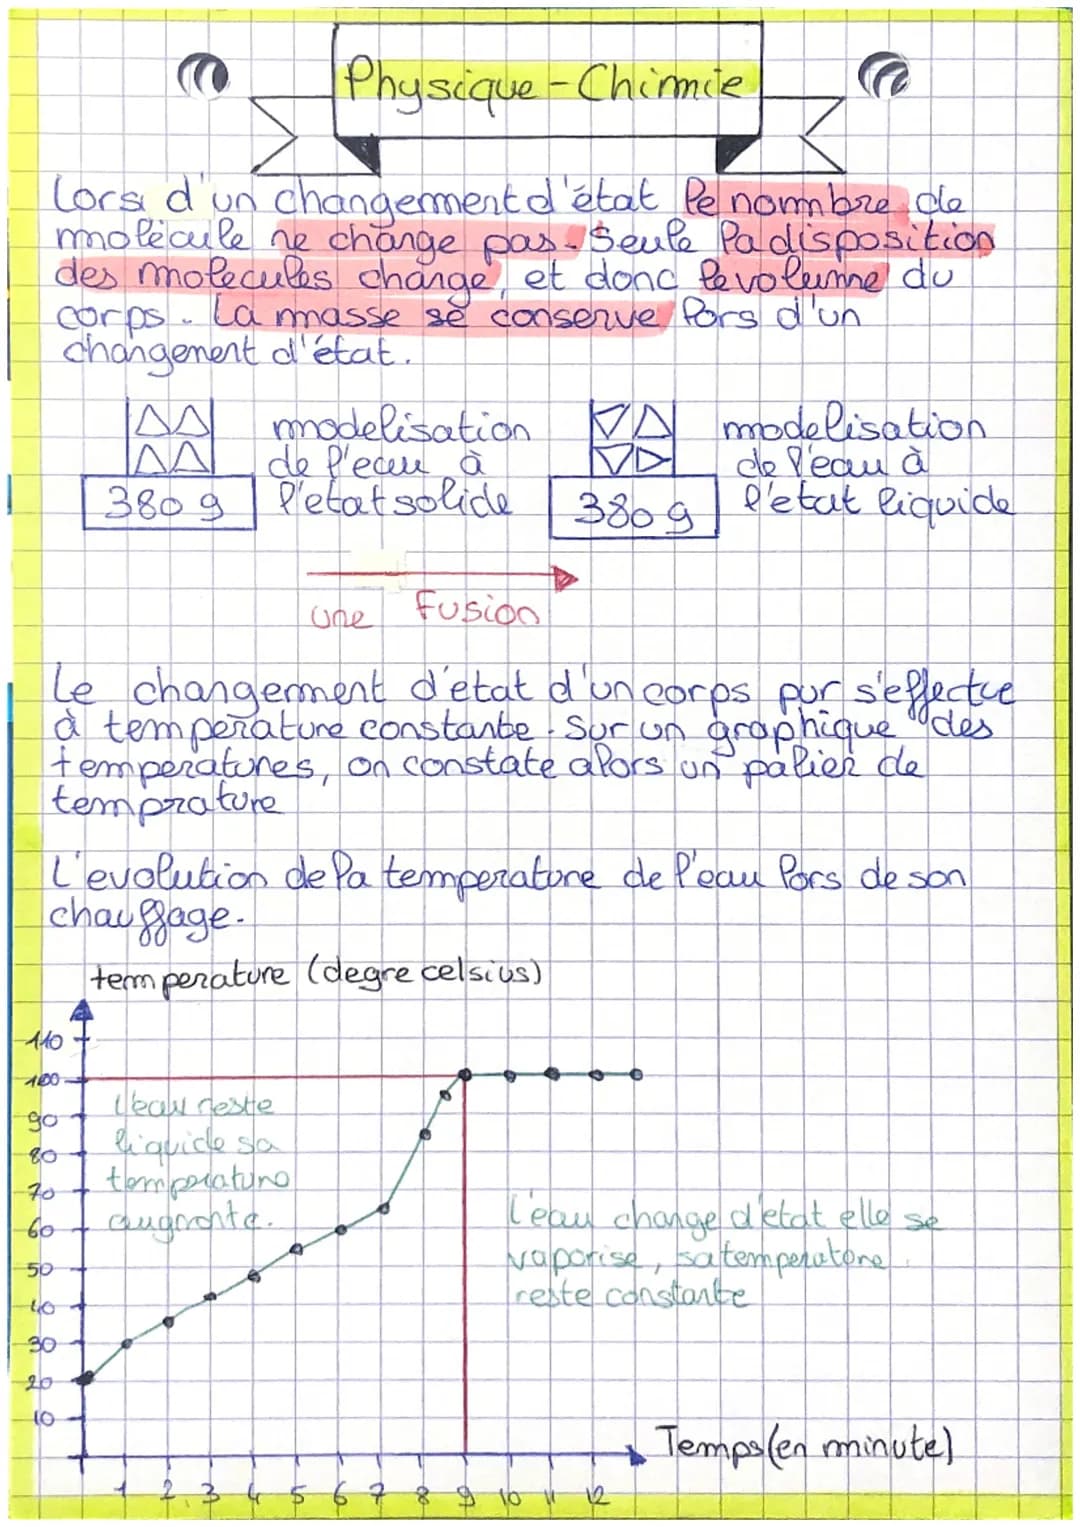 Physique-Chimie
Lors d'un changement d'état le nombre de
molécule ne change pas. Seule la disposition
des molecules change, et donc le volume du
corps. La masse se conserve lors d'un
changement d'état.
modelisation
de l'eau à
l'etat solide
380 g
modelisation
de l'eau à
l'etat liquide
380 g
une Fusion
Le changement d'état d'un corps pur s'effectue
à température constante. Sur un graphique des
temperatures, on constate alors un palier de
temprature
L'evolution de la temperature de l'eau lors de son
chauffage.
temperature (degre celsius)
110
100
90
80
70
60
50
40
30
20
10
L'eau reste
liquide sa
temperature
augmente.
L'eau change d'état elle se
vaporise, sa temperature
reste constante
Temps (en minute)
1 2 3 4 5 6 7 8 9 10 11 12